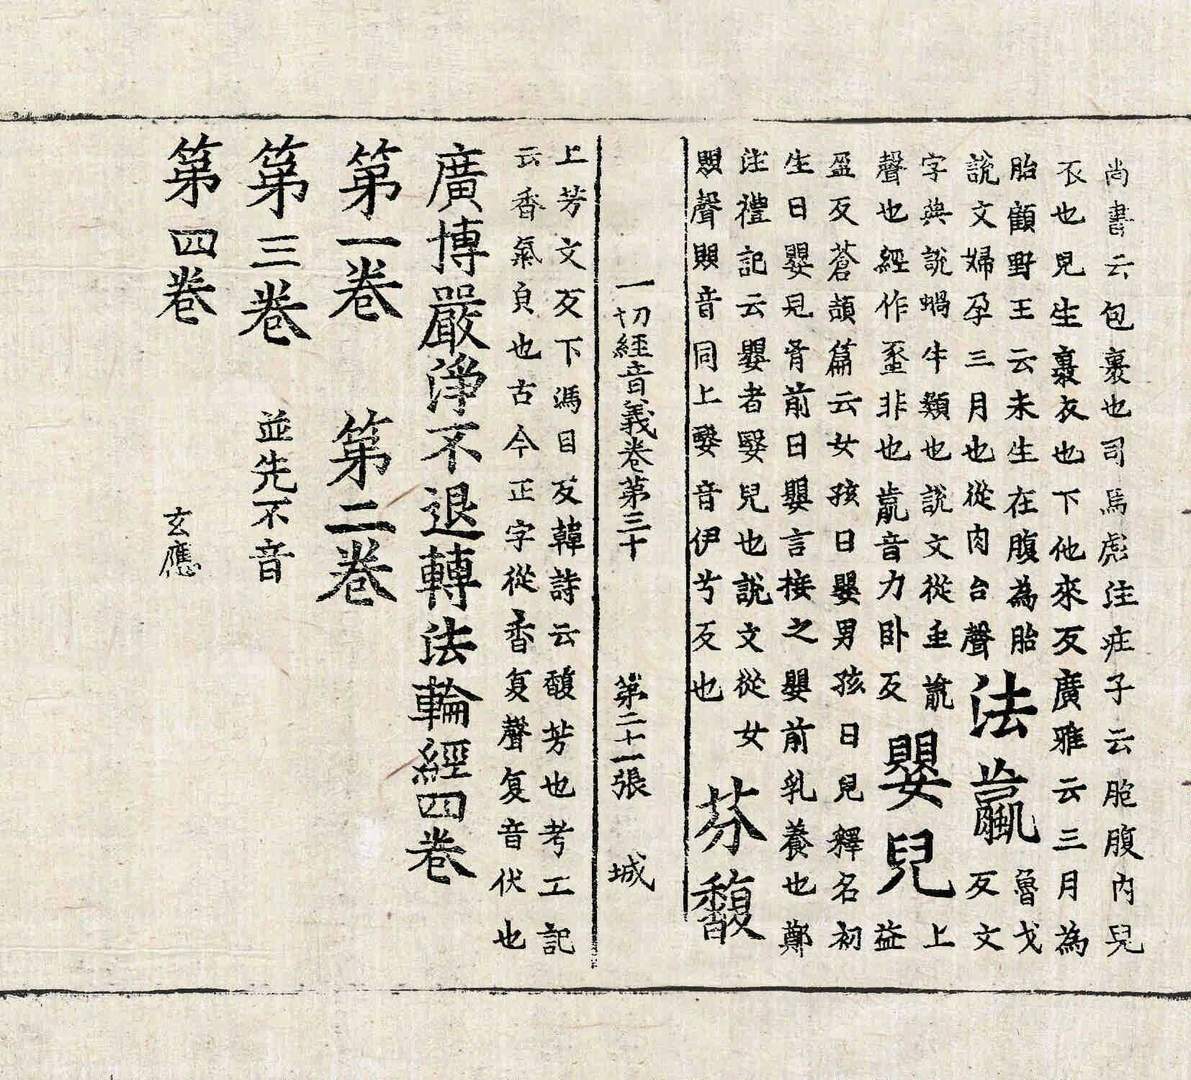 尚書云包裹也司馬彪注莊子云胞腹內兒
衣也兒生裹衣也下他來反廣雅云三月為
胎顧野王云未生在腹為胎
說文婦孕三月也從肉台聲
法蠃
魯戈
反文
字典說蝸牛類也說文從虫𣎆
上
聲也經作蠃非也𣎆音力臥反
嬰兒
益
盈反蒼頡篇云女孩曰嬰男孩曰兒釋名初
生曰嬰兒胷前曰嬰言接之嬰前乳養也鄭
注禮記云嬰者嫛兒也說文從女
賏聲賏音同上嫛音伊兮反也
芬馥
一切經音義卷第三十 第二十一張 城
上芳文反下馮目反韓詩云馥芳也考工記
云香氣皃也古今正字從香复聲复音伏也
廣博嚴淨不退轉法輪經四卷
第一卷 第二卷
第三卷 並先不音
第四卷 玄應